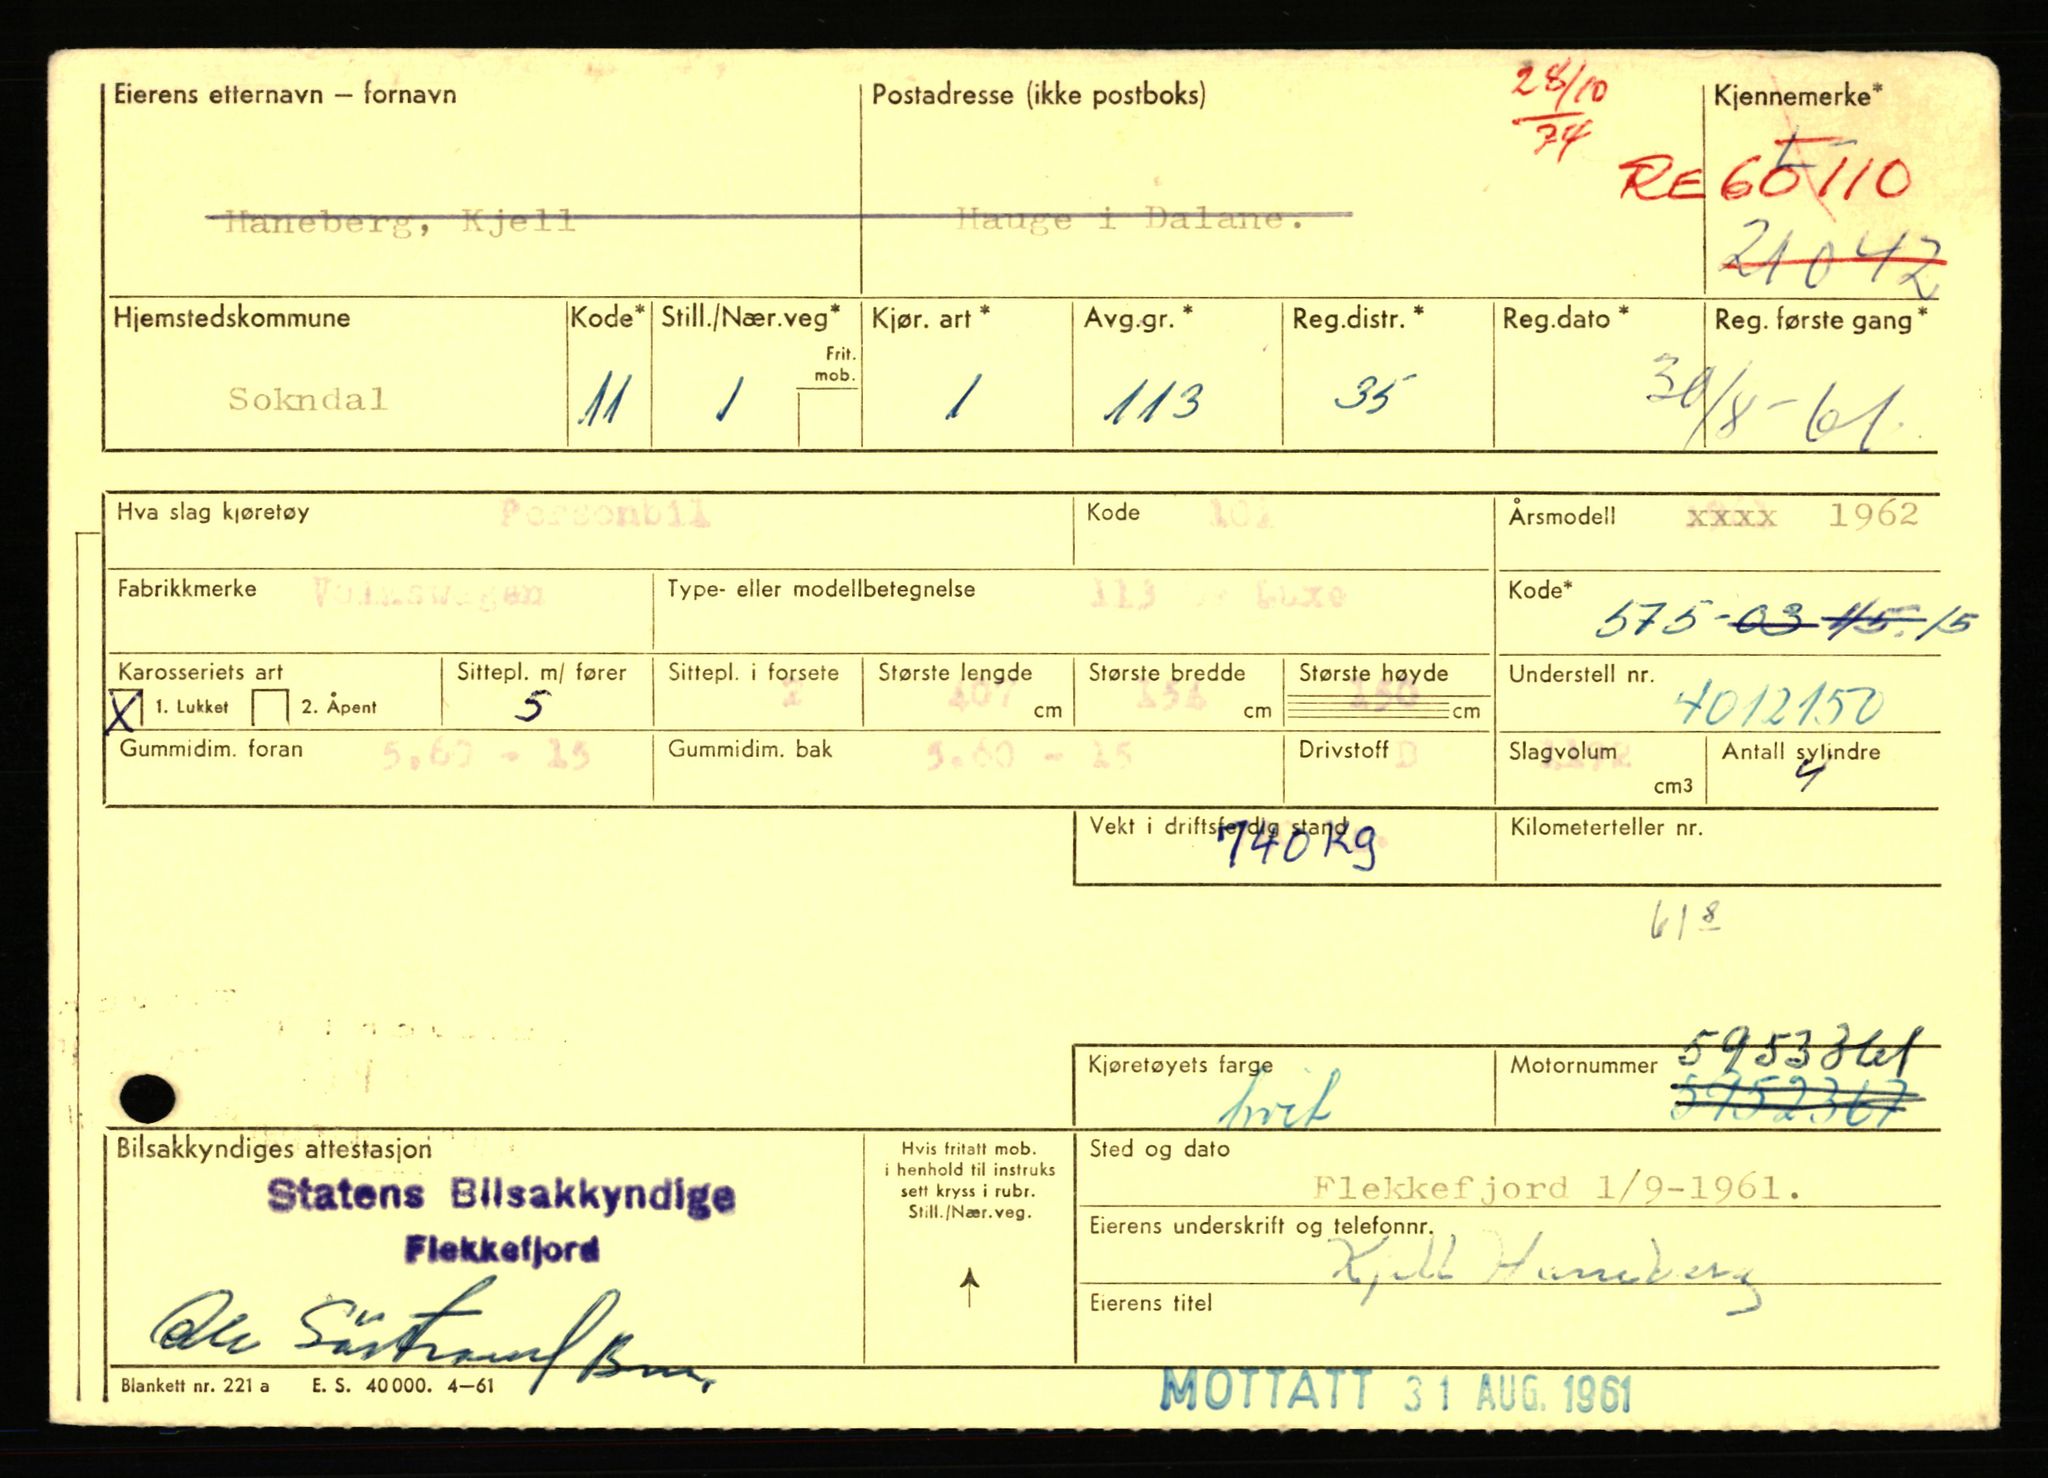 Eierens etternavn – fornavn
Postadresse (ikke postboks)
28/10
74
Kjennemerke*
RE 65110
Haneberg, Kjell
Hauge i Dalane.
21042
Hjemstedskommune
Kode*
Still./Nær.veg*
Kjør. art *
Avg.gr. *
Reg.distr. *
Reg.dato *
Reg. første gang *
Frit.
mob.
Sokndal
11
1
1
113
35
30/8-61.
Hva slag kjøretøy
Personbil
Kode
101
Årsmodell
xxxx 1962
Fabrikkmerke
Volkswagen
Type- eller modellbetegnelse
113 Luxe
Kode*
575-03 15. 15
Karosseriets art
Sittepl. m/ fører
Sittepl. i forsete
Største lengde
Største bredde
Største høyde
Understell nr.
X 1. Lukket
2. Åpent
5
2
407
cm
154
cm
150
cm
4012150
Gummidim. foran
5.60 - 15
Gummidim. bak
5.60 - 15
Drivstoff
B
Slagvolum
1192
cm3
Antall sylindre
4
Vekt i driftsferdig stand
740 kg
Kilometerteller nr.
61 8
Kjøretøyets farge
hvit
Motornummer
5952367
Bilsakkyndiges attestasjon
Statens Bilsakkyndige
Flekkefjord
Hvis fritatt mob.
i henhold til instruks
sett kryss i rubr.
Still./Nær.veg.
Sted og dato
Flekkefjord 1/9-1961.
Eierens underskrift og telefonnr.
Kjell Haneberg
Eierens titel
Blankett nr. 221 a E. S. 40 000. 4–61
MOTTATT 31 AUG. 1961